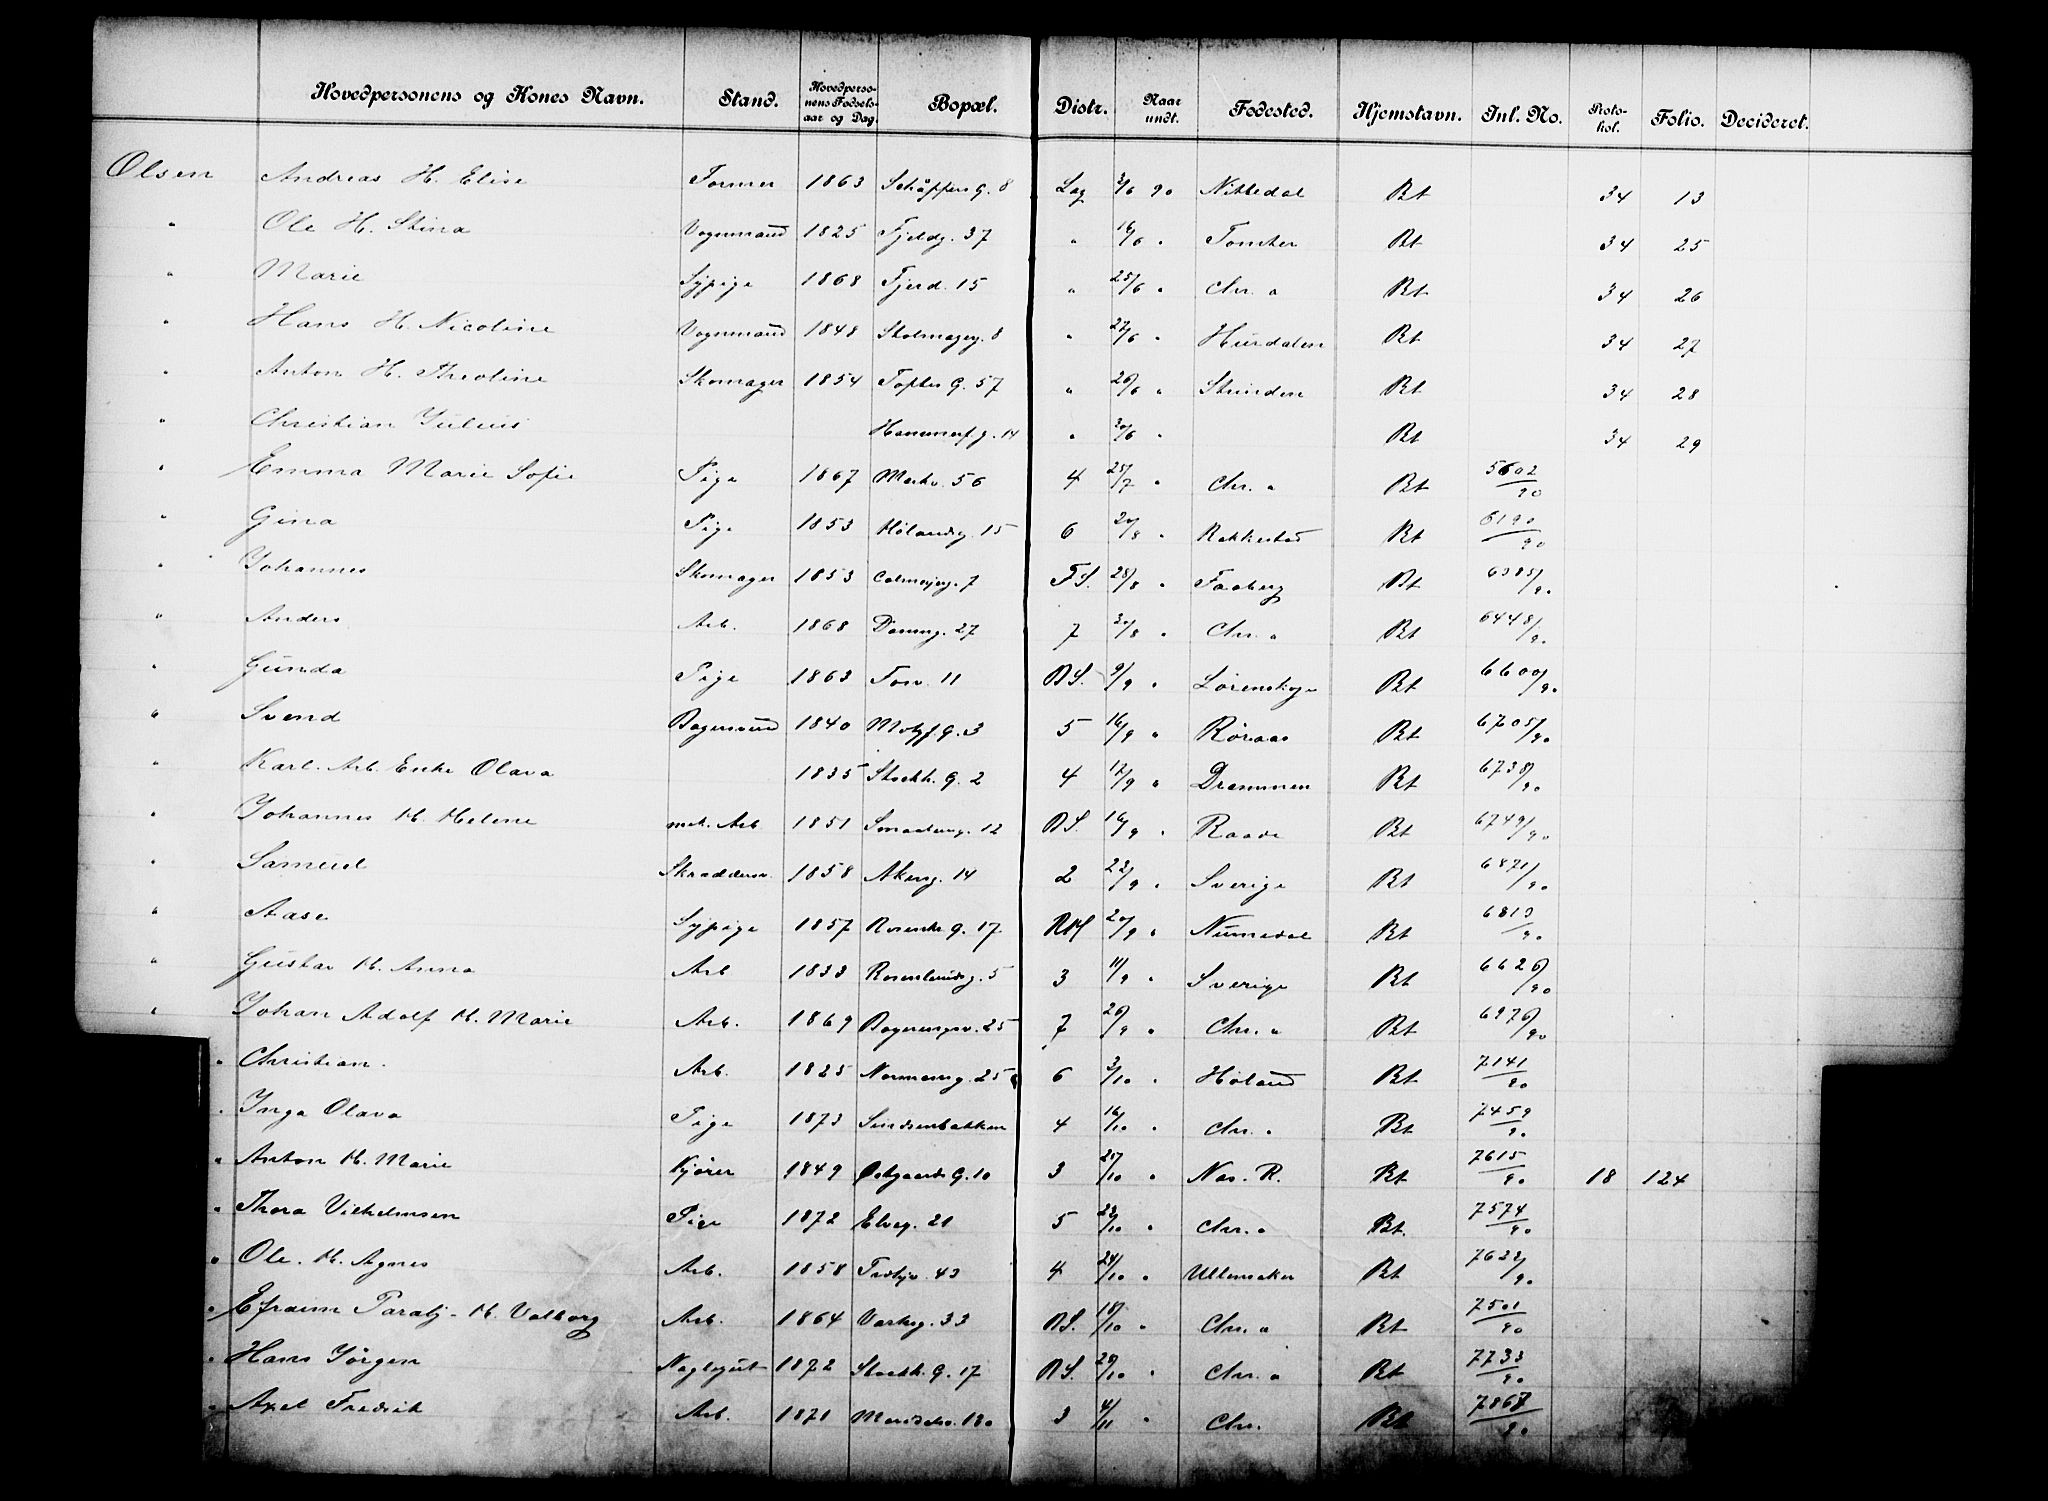 Hovedpersonens og Kones Navn. Stand. Hovedpersonens Fødselsaar og Dag. Bopæl. Distr. Naar undt. Fødested. Hjemstavn. Inl. No. Protokol. Folio. Decideret.
Olsen Andreas H. Elise Former 1863 g. 8 Lag 3/6 90 Nittedal Bt 34 13
" Ole H. Stina Vognmand 1825 Fjeldg. 37 " 16/6 " Tomter Bt 34 25
" Marie Sypige 1868 Fjerd. 15 " 25/6 " Chr. a Bt 34 26
" Hans H. Nicoline Vognmand 1848 8 " 27/6 " Hurdalen Bt 34 27
" Anton H. Theoline Skomager 1854 Toftes G. 57 " 26/6 " Strinden Bt 34 28
" Christian Julius Hammerf g. 14 " " Bt 34 29
" Emma Marie Sofie Pige 1867 Markv. 56 4 25/7 " Chr. a Bt 5602/90
" Gina Pige 1853 Hølandsg. 15 6 " Rakkestad Bt 6190/90
" Johannes Skomager 1853 Calmeyerg. 7 F.S. 28/8 " Faaberg Bt 6385/90
" Anders Arb. 1868 27 7 " Chr. a Bt 6448/90
" Gunda Pige 1863 Fosv. 11 B.S. 9/9 " Lørenskoge Bt 6600/90
" Svend Bagersvend 1840 Motzf. G. 3 5 16/9 " Røraas Bt 6705/90
" Karl. Arb. Enke Olava 1835 Stockh. G. 2 4 12/9 " Drammen Bt 6738/90
" Johannes H. Helene mek. Arb. 1851 Smaalensg. 12 B.S. 16/9 " Raade Bt 6749/90
" Samuel Skræddersv. 1858 Akersg. 14 2 22/9 " Sverige Bt 6871/90
" Aase Sypige 1857 Rosenkr. G. 17 RH 20/9 " Numedal Bt 6810/90
" Gustav H. Anna Arb 1833 Rosenlundsg. 5 3 11/9 " Sverige Bt 6626/90
" Johan Adolf H. Marie Arb. 1869 25 7 26/9 " Chr. a Bt 6976/90
" Christian. Arb. 1825 Normannsg. 25 6 3/10 " Høland Bt 7141/90
" Inga Olava Pige 1873 4 16/10 " Chr. a Bt 7459/90
" Anton H. Marie Kjører 1849 Østgaards G. 10 3 " Nas. R. Bt 7615/90 18 124
" Thora Vilhelmsen Pige 1872 Elveg. 21 5 22/10 " Chr. a Bt. 7574/90
" Ole. H. Agnes Arb. 1858 43 4 24/10 " Ullensaker Bt 7632/90
" Efraim Paralj- H. Valborg Arb. 1864 33 B.S. 18/10 " Chr. a Bt 7501/90
" Hans Jørgen Naglegut 1872 Stockh. G. 17 B.S. 29/10 " Chr. a Bt 7733/90
" Axel Fredrik Arb. 1871 3 4/11 " Chr. Bt 7867/90